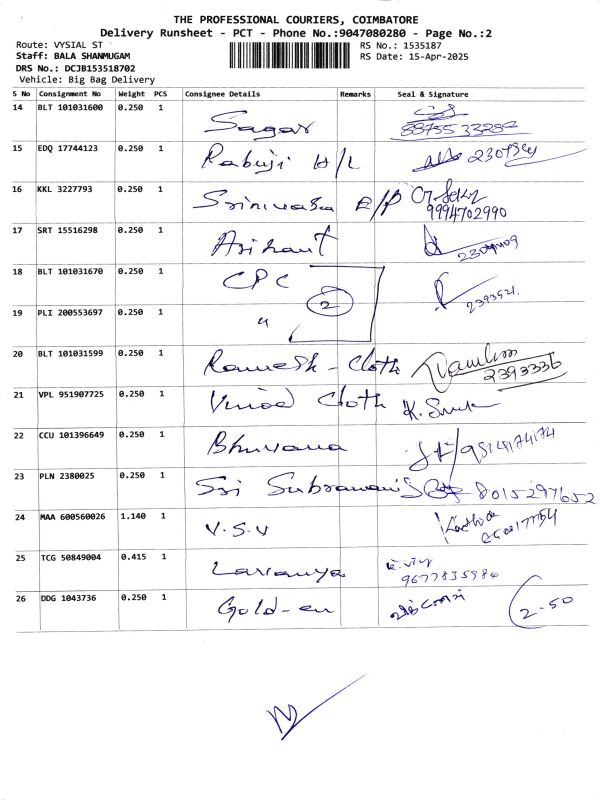 THE PROFESSIONAL COURIERS, COIMBATORE
Delivery Runsheet - PCT - Phone No.:9047080280 - Page No.:2
Route: VYSIAL ST RS No.: 1535187
Staff: BALA SHANMUGAM RS Date: 15-Apr-2025
DRS No.: DCJB153518702
Vehicle: Big Bag Delivery
S No Consignment No Weight PCS Consignee Details Remarks Seal & Signature
14 BLT 101031600 0.250 1 Sagar
15 EDQ 17744123 0.250 1 Rabuji H/L
16 KKL 3227793 0.250 1 Srinivasa E/P 9994702990
17 SRT 15516298 0.250 1 Arihant
18 BLT 101031670 0.250 1 CPC 2393521
19 PLI 200553697 0.250 1 " 2
20 BLT 101031599 0.250 1 Ramesh - Cloth 2393336
21 VPL 951907725 0.250 1 Vinod Cloth
22 CCU 101396649 0.250 1 Bhuvana
23 PLN 2380025 0.250 1 Sri Subramani S 8015297652
24 MAA 600560026 1.140 1 V.S.V
25 TCG 50849004 0.415 1 Lavanya 9677835984
26 DDG 1043736 0.250 1 Gold-en 2-50